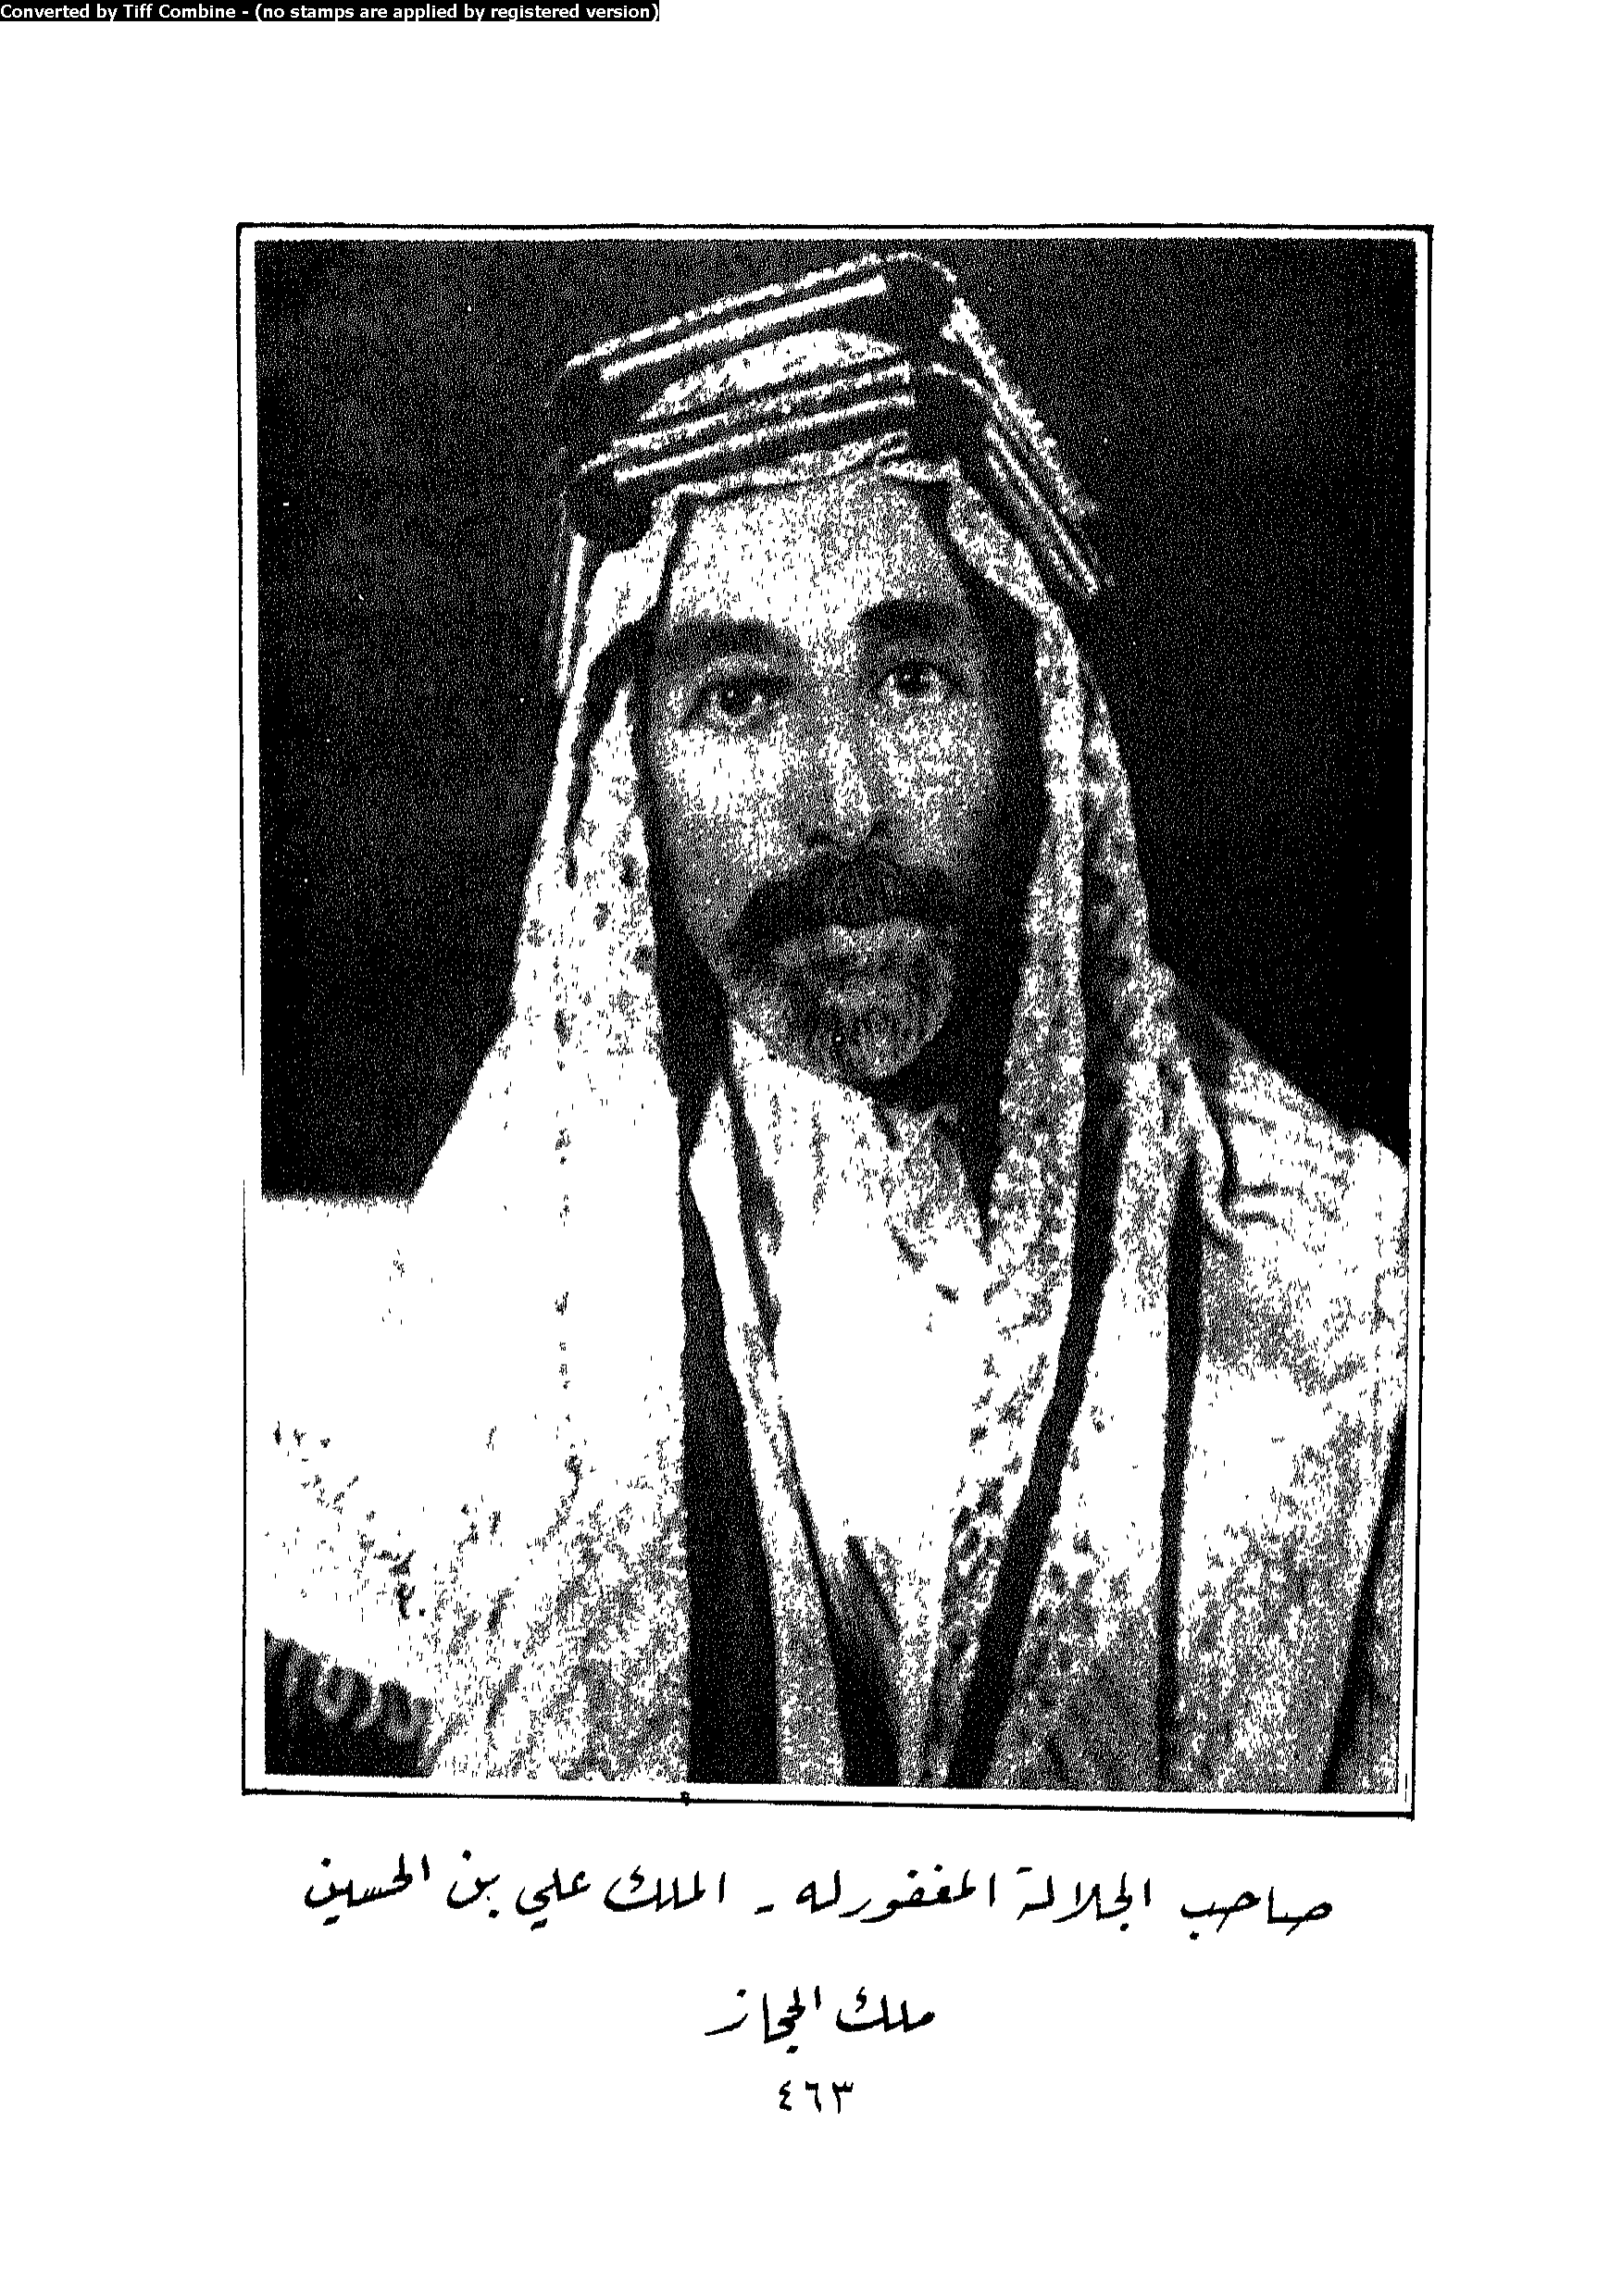 Converted by Tiff Combine - (no stamps are applied by registered version)
صاحب الجلالة المغفور له - الملك علي بن الحسين
ملك الحجاز
٤٦٣